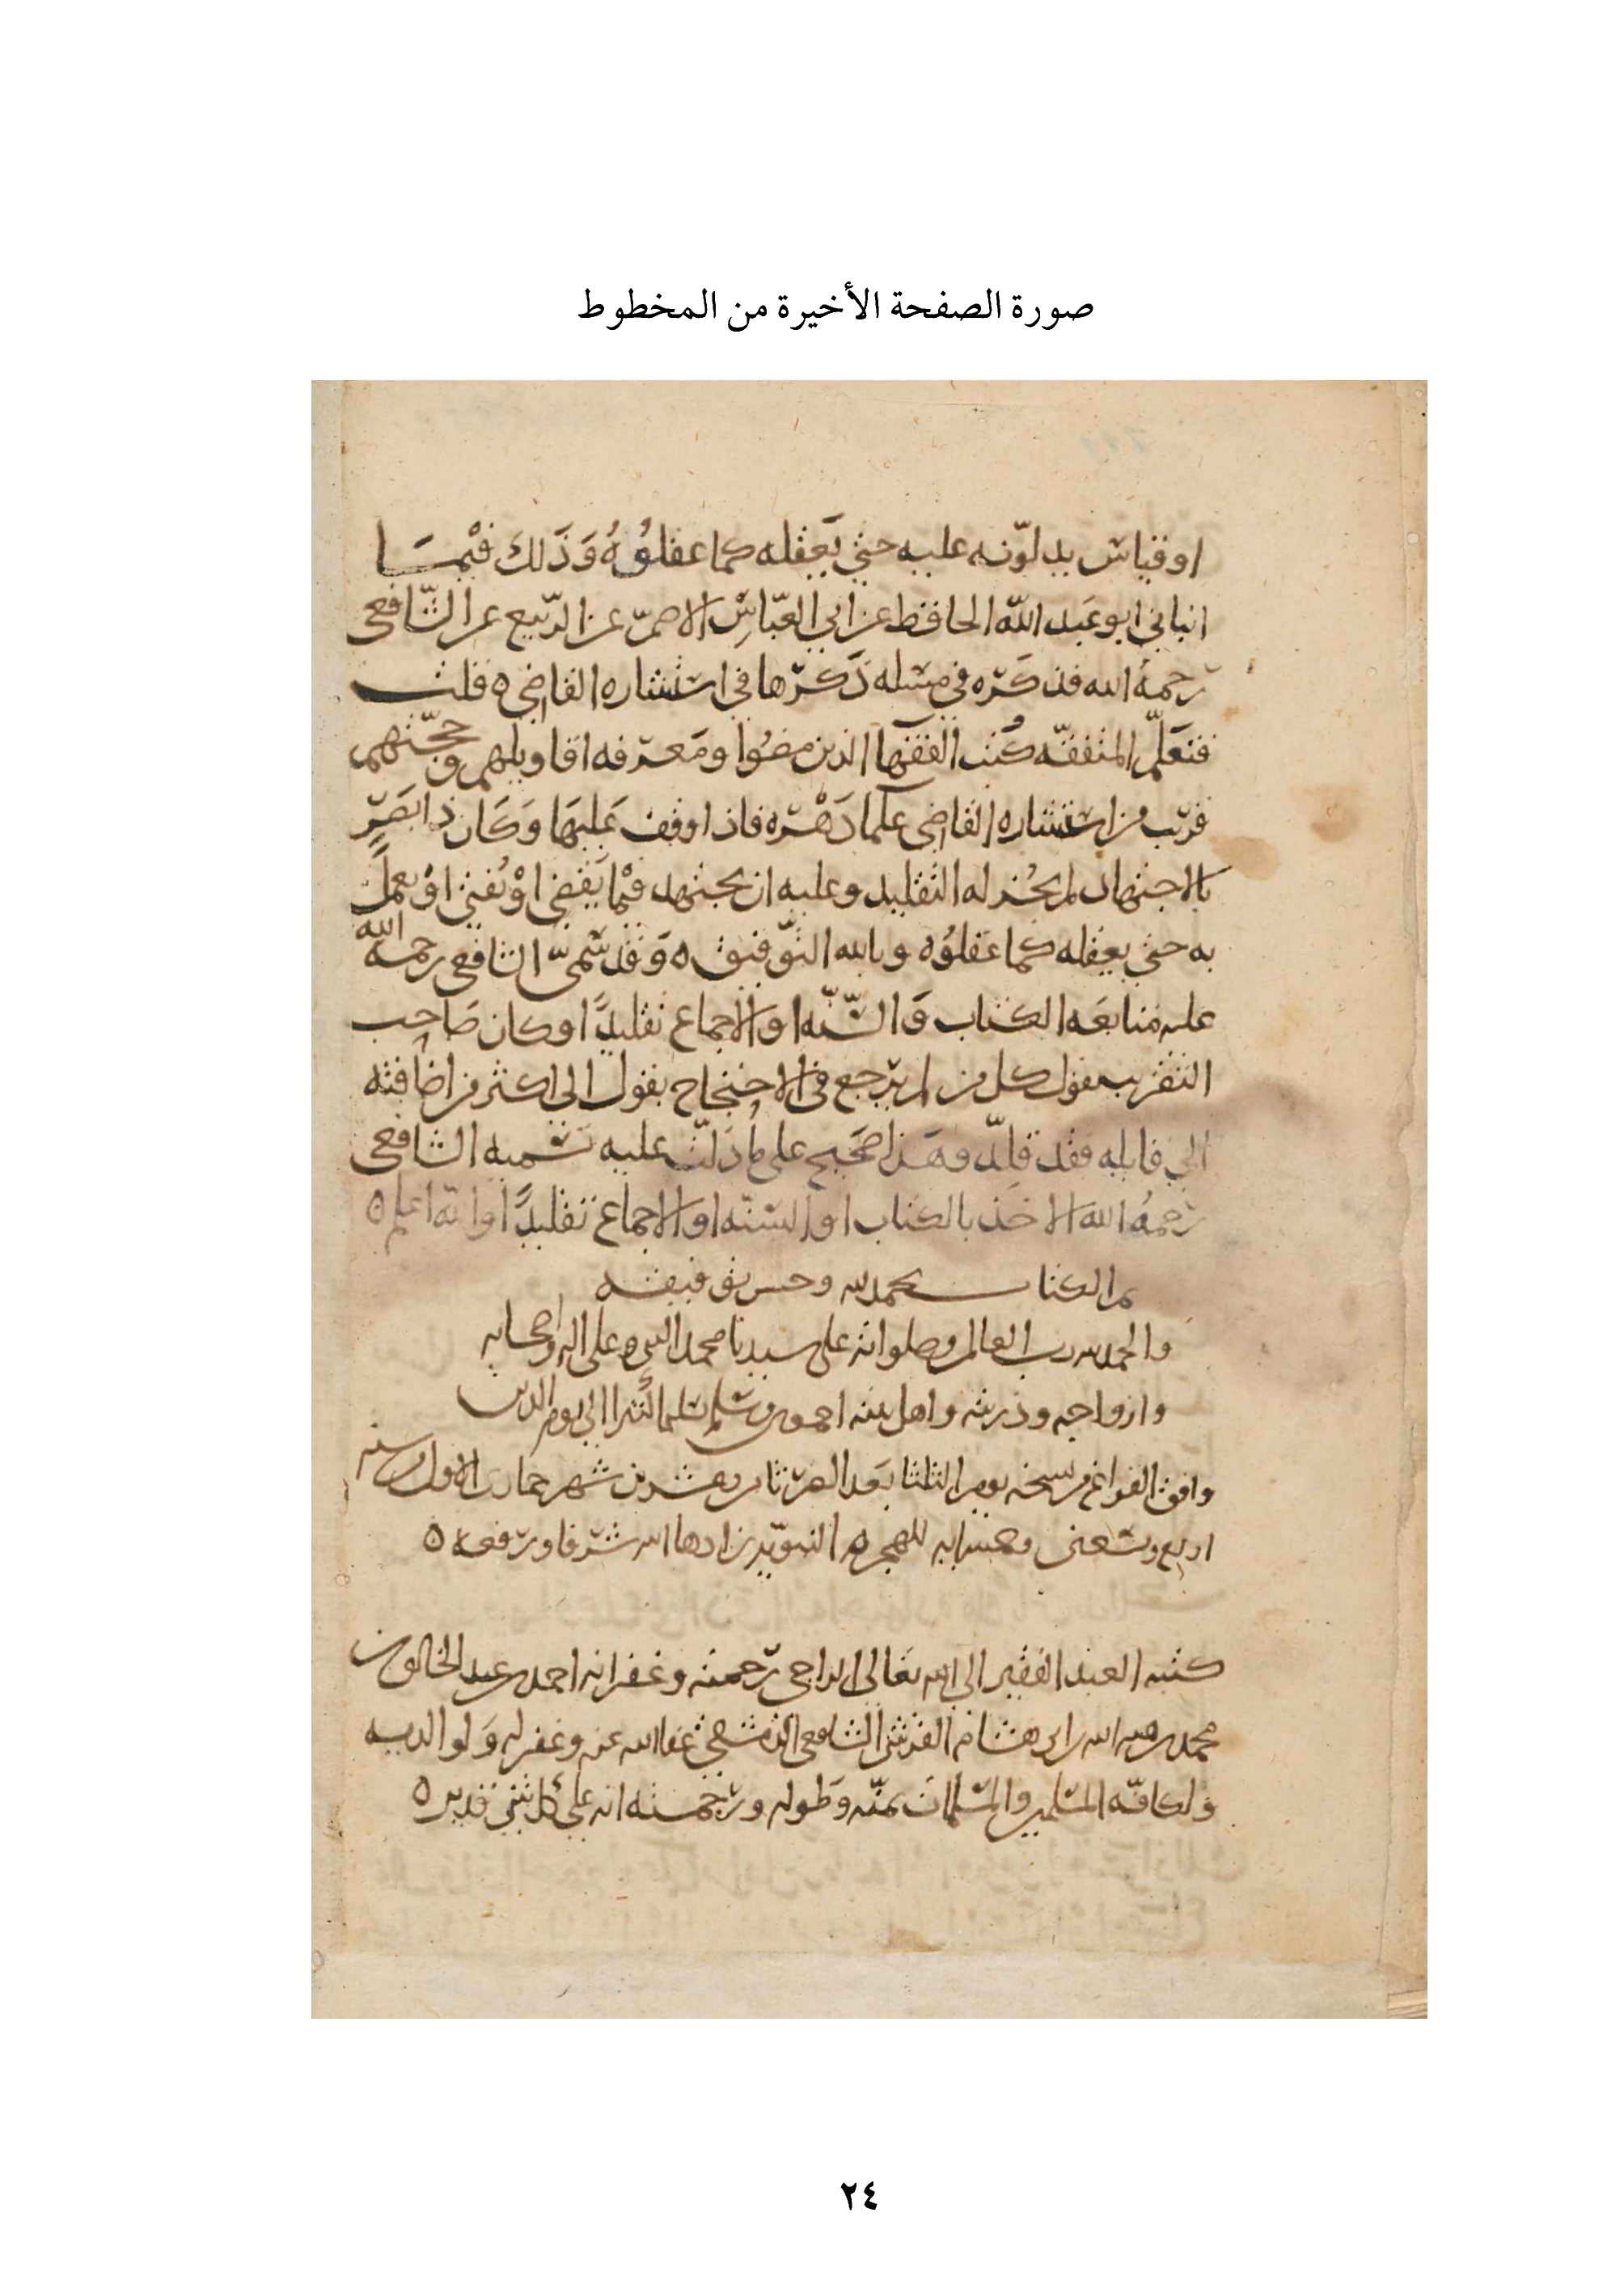 صورة الصفحة الأخيرة من المخطوط
او قياس يدلّونه عليه حتى يَعقله كما عقلُوُهُ وَذَلك فيْمَـا
انباني ابو عَبد الله الحافظ عن ابي العبّاسِ الاصمّ عن الرّبيع عن الشّافعي
رّحمهُ الله فذكَرّه في مسله ذَكرّها في استشاره القاضي ٥ قلت
فتعَلّم المتفقّه كُتب الفقهآ الذين مضوُا ومَعرفه اقاويلهم وحججّهم
قرّيب من استشاره القاضي علمآ دَهْرّه فاذا وقف عَليهَا وَكَان ذا بَصَرٍّ
بالاجتهاد لم يجُز له التقليد وعليه ان يجتهد فيْما يَقضي اوْ يُفتي اوْ يعملُ
به حتى يعقله كما عَقلوُه وبالله التوّفيق ٥ وَقد سمّى الشافعي رحمه الله
عليه متابعَه الكتاب وَالسّنّه او الاجماع تقليدًا وكان صَاحِب
التقريب يقول كل من لم يرّجع في الاحتجاح بقول الى اكثر من اضافته
الى قايله فقد قلّد وهَذا صَحيح على ما دَلّت عليه تسميه الشافعي
رّحمهُ الله الاخذ بالكتاب او السّنّه او الاجماع تقليدًا والله اعلم ٥
تم الكتاب بحمد الله وحسن توفيقه
والحمد لله رب العالمين وصلواته على سيدنا محمد النبي وعلى اله واصحابه
وازواجه وذريته واهل بيته اجمعين وسّلم تسليما كثيرا الى يوم الدين
وافق الفراغ من نسخه يوم الثلثا بَعد العصر ثامن وعشرين شهر جمادى الاول من سنه
اربع وتسعين وخمسمايه للهجره النبوّيه زادها الله شرّفا ورّفعه ٥
كتبه العبد الفقير الى الله تعَالى الراجي رّحمته وغفرانه احمد بن عبد الخالق بن
محمد بن هبه الله بن ابي هشام القرشي الشافعي الدّمشقي عَفا الله عنه وغفر له وَلوالديه
ولكافّه المسّلمين والمسّلمات بمنّه وَطوله ورّحمته انه على كل شي قدير ٥
٢٤